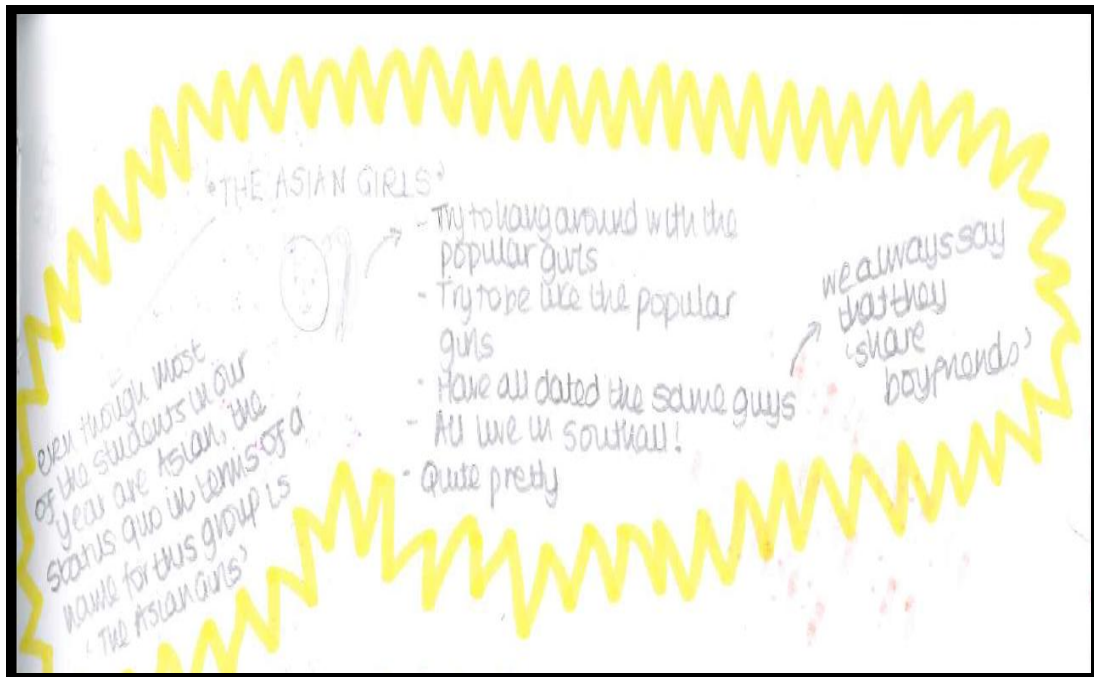 'THE ASIAN GIRLS'
- Try to hang around with the
popular girls
- Try to be like the popular
girls
- Have all dated the same guys
- All live in southall!
- Quite pretty
we always say
that they
'share
boyfriends'
even though most
of the students in our
year are Asian, the
status quo in terms of a
name for this group is
'The Asian Girls'